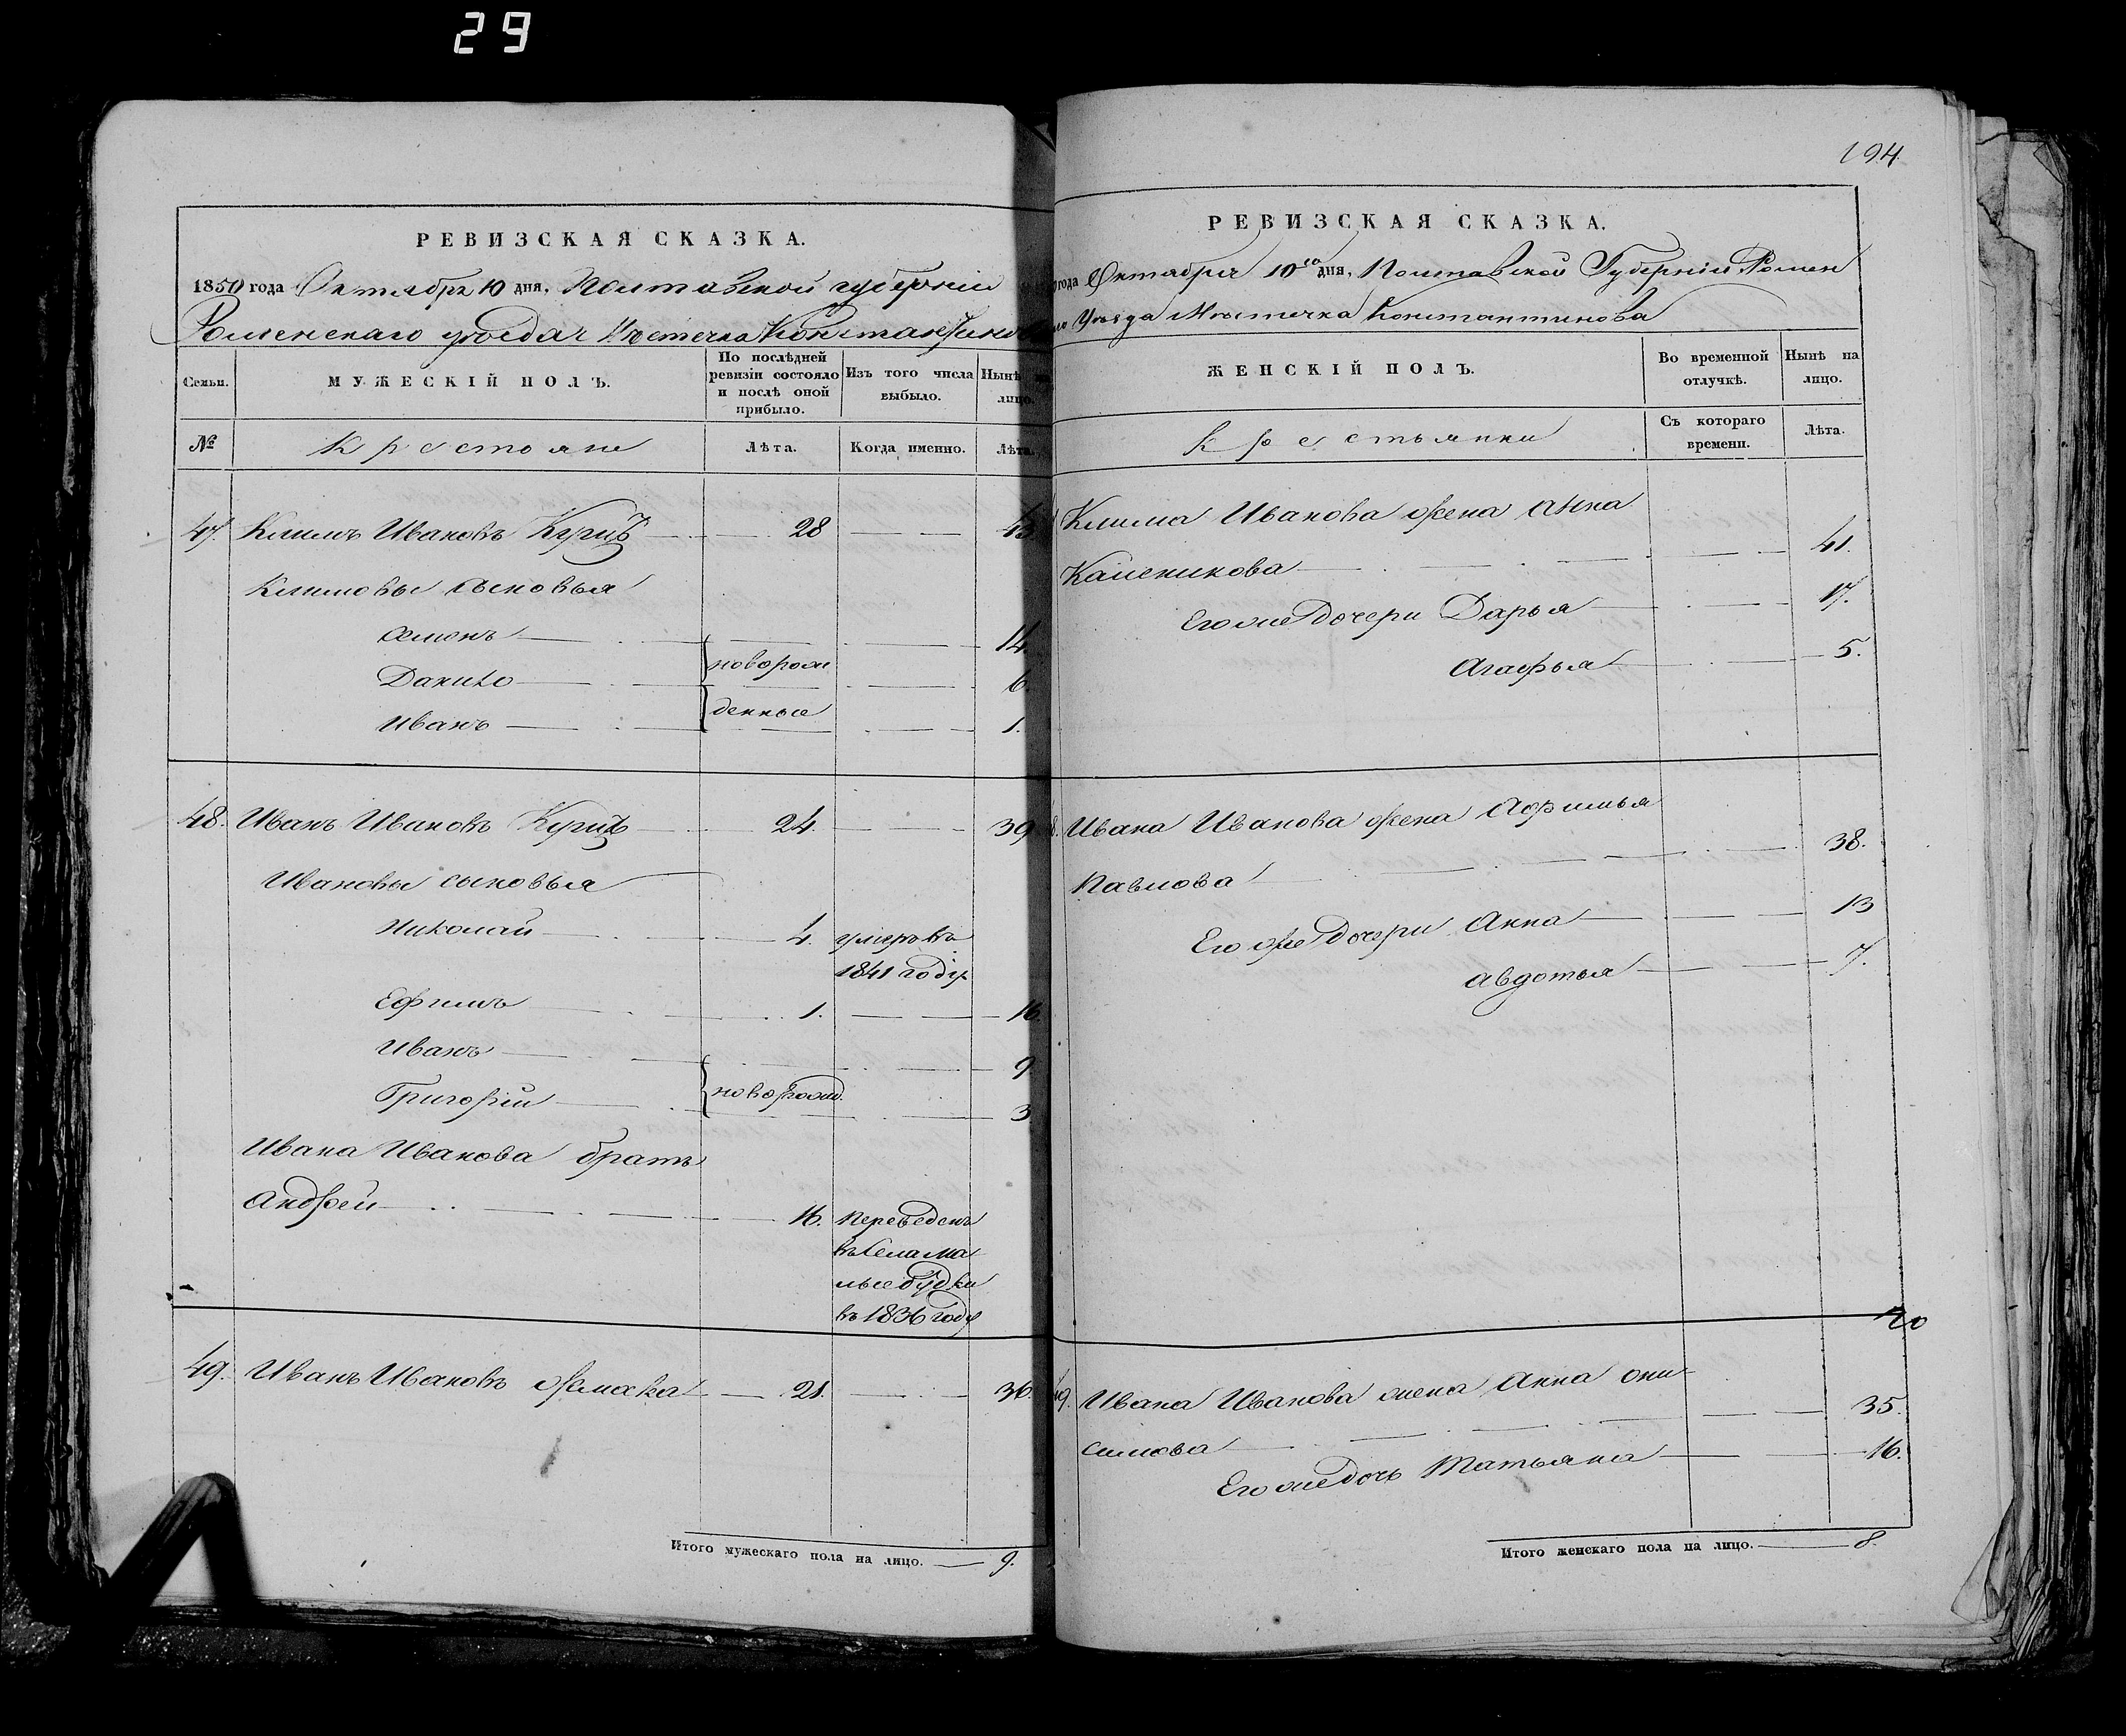 29
РЕВИЗСКАЯ СКАЗКА.
1850 года Октября 10 дня, Полтавской губерніи
Роменскаго уезда Местечка Константинова
Семьи.
МУЖЕСКІЙ ПОЛЪ.
По послѣдней ревизіи состояло и послѣ оной прибыло.
Изъ того числа выбыло.
Нынѣ на лицо.
№
Крестьяне
Лѣта.
Когда именно.
Лѣта.
47. Климъ Ивановъ 28 43
Климовы сыновья
Семенъ 14.
новорож
Данило 6.
денные
Иванъ 1.
48. Иванъ Ивановъ 24. 39
Ивановы сыновья
Николай 4. умеръ въ
1841 году
Ефимъ 1. 16.
Иванъ 9
новорожд.
Григорій 3
Ивана Иванова братъ
Андрей 16. переведенъ
въ села Ма
лые будки
въ 1836 году
49. Иванъ Ивановъ 21. 36.
Итого мужескаго пола на лицо. 9.
194.
РЕВИЗСКАЯ СКАЗКА.
года Октября 10го дня, Полтавской Губерніи Ромен
Уѣзда Мѣстечка Константинова
ЖЕНСКІЙ ПОЛЪ.
Во временной отлучкѣ.
Нынѣ на лицо.
Крестьянки
Съ котораго времени.
Лѣта.
Клима Иванова жена Анна
Каленикова 41.
Его же дочери Дарья 17.
Агафья 5.
8. Ивана Иванова жена Афимья
Павлова 38.
Его же дочери Анна 13
Авдотья 7.
49. Ивана Иванова жена Анна Они-
симова 35.
Его же дочь Татьяна 16.
Итого женскаго пола на лицо. 8.